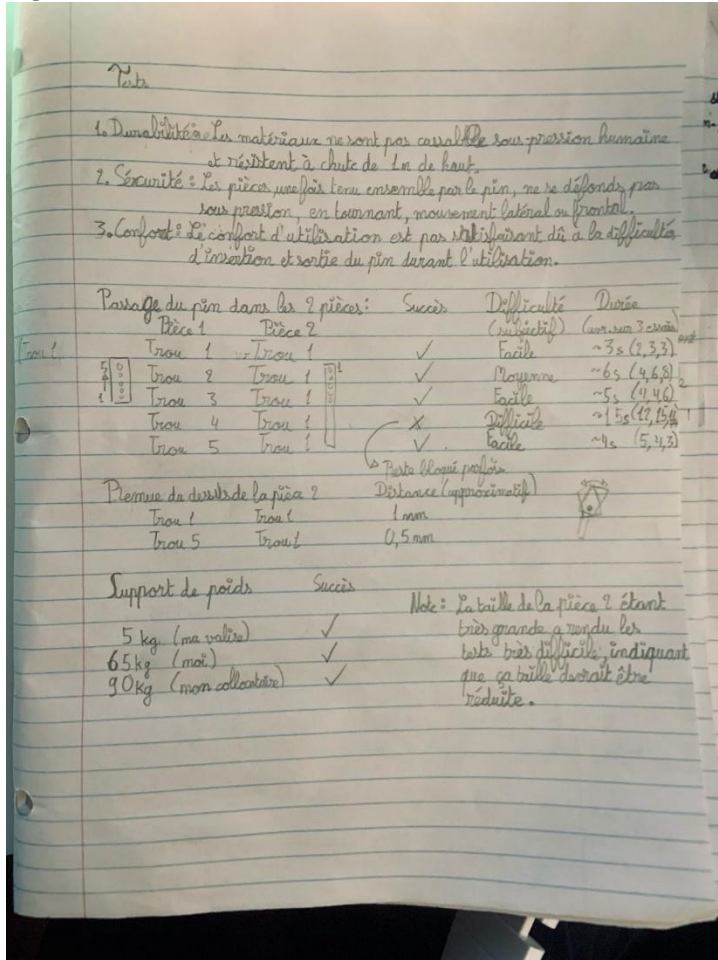 Tests
1. Durabilité : Les matériaux ne sont pas cassable sous-pression humaine
et résistent à chute de 1m de haut.
2. Sécurité : Les pièces, une fois tenu ensemble par le pin, ne se défonds pas
sous pression, en tournant, mouvement latéral ou frontal.
3. Confort : Le confort d'utilisation est pas satisfaisant dû à la difficultés
d'insertion et sortie du pin durant l'utilisation.
Passage du pin dans les 2 pièces : Succès Difficulté Durée
Pièce 1 Pièce 2 (subjectif) (sur 3 essais)
Trou 1 Trou 1 Trou 1 ✓ Facile ~3s (2,3,3)
Trou 2 Trou 1 ✓ Moyenne ~6s (4,6,8)
Trou 3 Trou 1 ✓ Facile ~5s (4,4,6)
Trou 4 Trou 1 X Difficile ~15s (12,15,
Trou 5 Trou 1 ✓ Facile ~4s (5,4,3)
Reste bloqué parfois
du dessus de la pièce 2 Distance (approximatif)
Trou 1 Trou 1 1 mm
Trou 5 Trou 1 0,5 mm
Support de poids Succès
5 kg (ma valise) ✓
65kg (moi) ✓
90kg (mon collocataire) ✓
Note : La taille de la pièce 2 étant
très grande a rendu les
tests très difficile, indiquant
que ça taille devrait être
réduite.